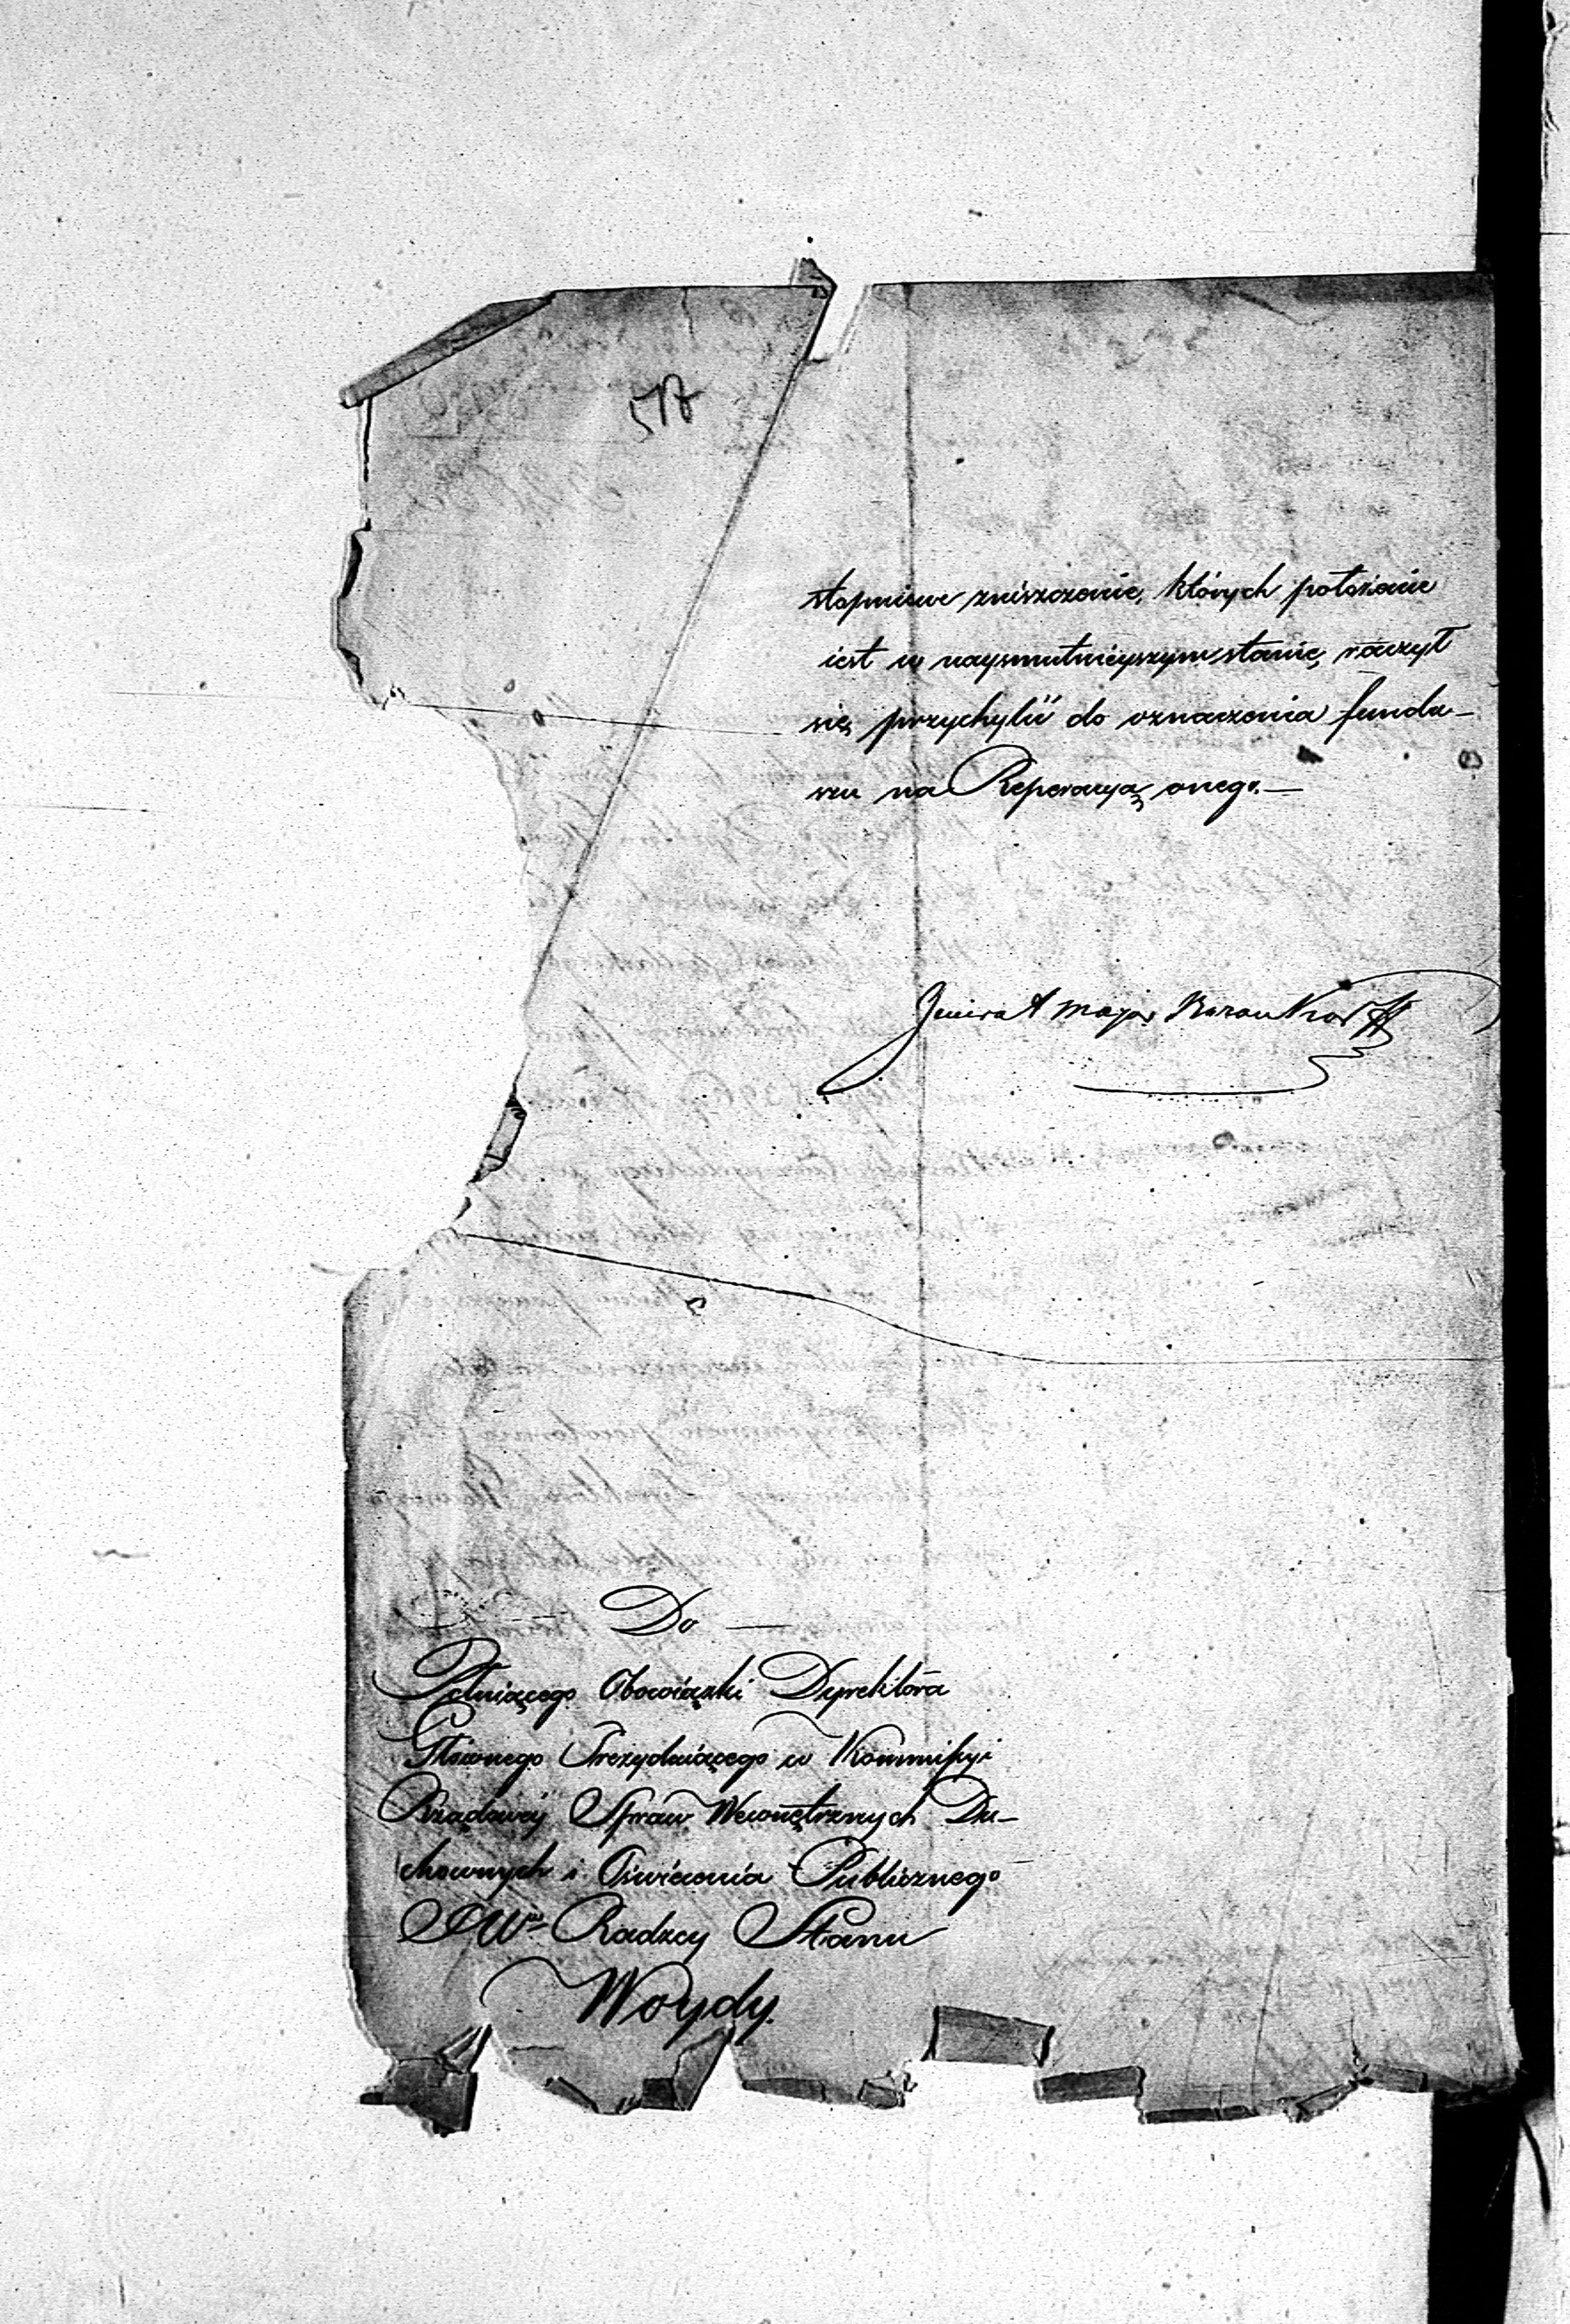 stopniowe zniszczenie, których położenie
iest w naysmutnieyszym stanie, raczył
się przychylić do oznaczenia fundu-
szu na Reperacyą onego.—
Jenerał Major
Do —
Pełniącego Obowiązki Dyrektora
Głównego Prezyduiącego w Kommissyi
Rządowéy Spraw Wewnętrznych Du-
chownych i Oświecenia Publicznego
JWo Radzcy Stanu
Woydy.